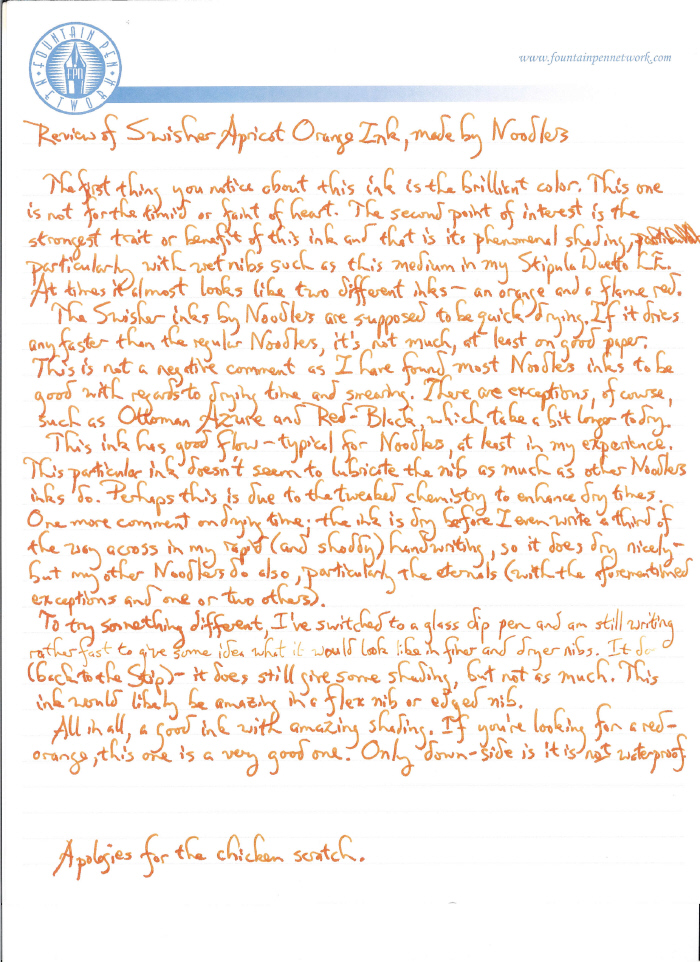 FOUNTAIN PEN
FPN
NETWORK
www.fountainpennetwork.com
Review of Swisher Apricot Orange Ink, made by Noodlers
The first thing you notice about this ink is the brilliant color. This one
is not for the timid or faint of heart. The second point of interest is the
strongest trait or benefit of this ink and that is its phenomenal shading,
particularly with wet nibs such as this medium in my Stipula Duetto L.E.
At times it almost looks like two different inks - an orange and a flame red.
The Swisher inks by Noodlers are supposed to be quick drying. If it dries
any faster than the regular Noodlers, it's not much, at least on good paper.
This is not a negative comment as I have found most Noodlers inks to be
good with regards to drying time and smearing. There are exceptions, of course,
such as Ottoman Azure and Red-Black, which take a bit longer to dry.
This ink has good flow - typical for Noodlers, at least in my experience.
This particular ink doesn't seem to lubricate the nib as much as other Noodlers
inks do. Perhaps this is due to the tweaked chemistry to enhance dry times.
One more comment on drying time: the ink is dry before I even write a third of
the way across in my rapid (and shoddy) handwriting, so it does dry nicely -
but my other Noodlers do also, particularly the eternals (with the aforementioned
exceptions and one or two others).
To try something different, I've switched to a glass dip pen and am still writing
rather fast to give some idea what it would look like in finer and dryer nibs. It do
(back to the Stip) - it does still give some shading, but not as much. This
ink would likely be amazing in a flex nib or edged nib.
All in all, a good ink with amazing shading. If you're looking for a red-
orange, this one is a very good one. Only down-side is it is not waterproof.
Apologies for the chicken scratch.